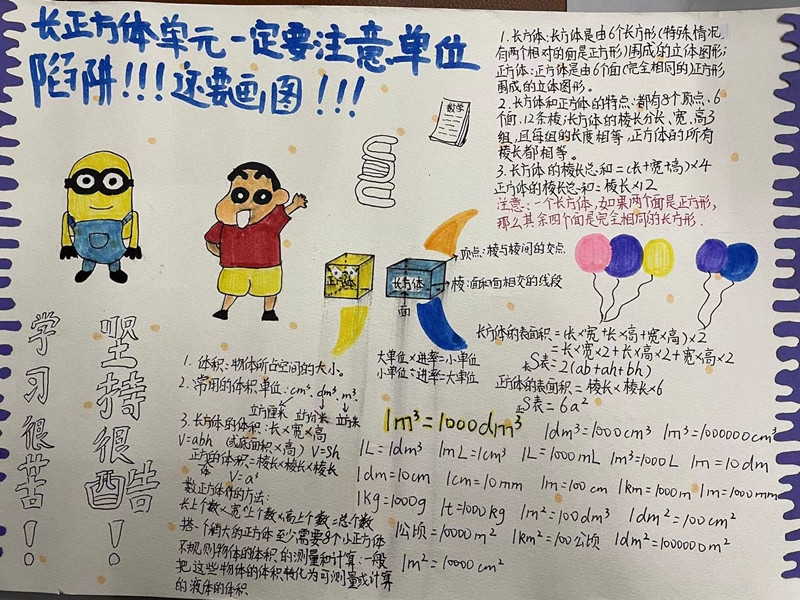 长正方体单元一定要注意单位
陷阱!!!还要画图!!!
数学
1.长方体:长方体是由6个长方形(特殊情况
有两个相对的面是正方形)围成的立体图形;
正方体:正方体是由6个面(完全相同的)正方形
围成的立体图形。
2.长方体和正方体的特点:都有8个顶点、6
个面、12条棱;长方体的棱长分长、宽、高3
组,且每组的长度相等,正方体的所有
棱长都相等。
3.长方体的棱长总和=(长+宽+高)×4
正方体的棱长总和=棱长×12
注意:一个长方体,如果两个面是正方形,
那么其余四个面是完全相同的长方形.
正方体
长方体
顶点:棱与棱间的交点
棱:面和面相交的线段
面
大单位×进率=小单位
小单位÷进率=大单位
长方体的表面积=(长×宽+长×高+宽×高)×2
=长×宽×2+长×高×2+宽×高×2
长S表=2(ab+ah+bh)
正方体的表面积=棱长×棱长×6
正S表=6a²
学习很苦!
坚持很酷!
1.体积:物体所占空间的大小。
2.常用的体积单位:cm³、dm³、m³.
立方厘米 立方分米 立方米
3.长方体的体积:长×宽×高
V=abh (或底面积×高) V=Sh
正方体的体积=棱长×棱长×棱长
V=a³
数正方体个的方法:
长上个数×宽上个数×高上个数=总个数
搭一个稍大的正方体至少需要8个小正方体
不规则物体的体积的测量和计算:一般
把这些物体的体积转化为可测量或计算
的液体的体积
1m³=1000dm³
1dm³=1000cm³ 1m³=1000000cm³
1L=1dm³ 1mL=1cm³ 1L=1000mL 1m³=1000L 1m=10dm
1dm=10cm 1cm=10mm 1m=100cm 1km=1000m 1m=1000mm
1kg=1000g 1t=1000kg 1m²=100dm² 1dm²=100cm²
1公顷=10000m² 1km²=100公顷 1dm²=1000000m²
1m²=10000cm²